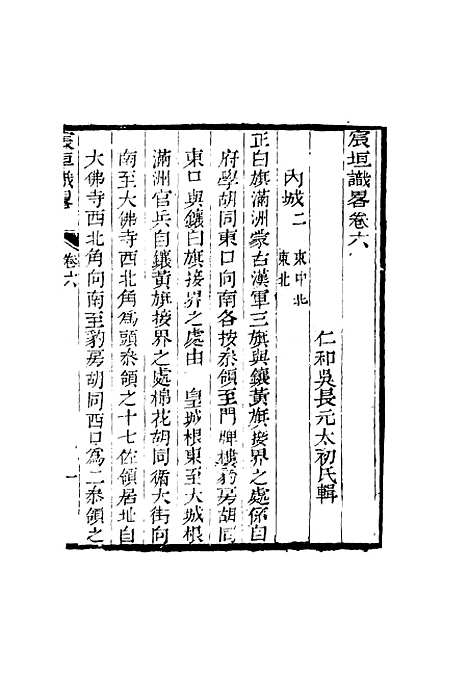 宸垣識畧卷六
仁和吳長元太初氏輯
內城二 東中北 東北
正白旗滿洲蒙古漢軍三旗與鑲黃旗接界之處係自
府學胡同東口向南各按叅領至門牌樓豹房胡同
東口與鑲白旗接界之處由 皇城根東至大城根
滿洲官兵自鑲黃旗接界之處棉花胡同衚大街向
南至大佛寺西北角為頭叅領之十七佐領居址自
大佛寺西北角向南至豹房胡同西口為二叅領之
宸垣識畧 卷六 一